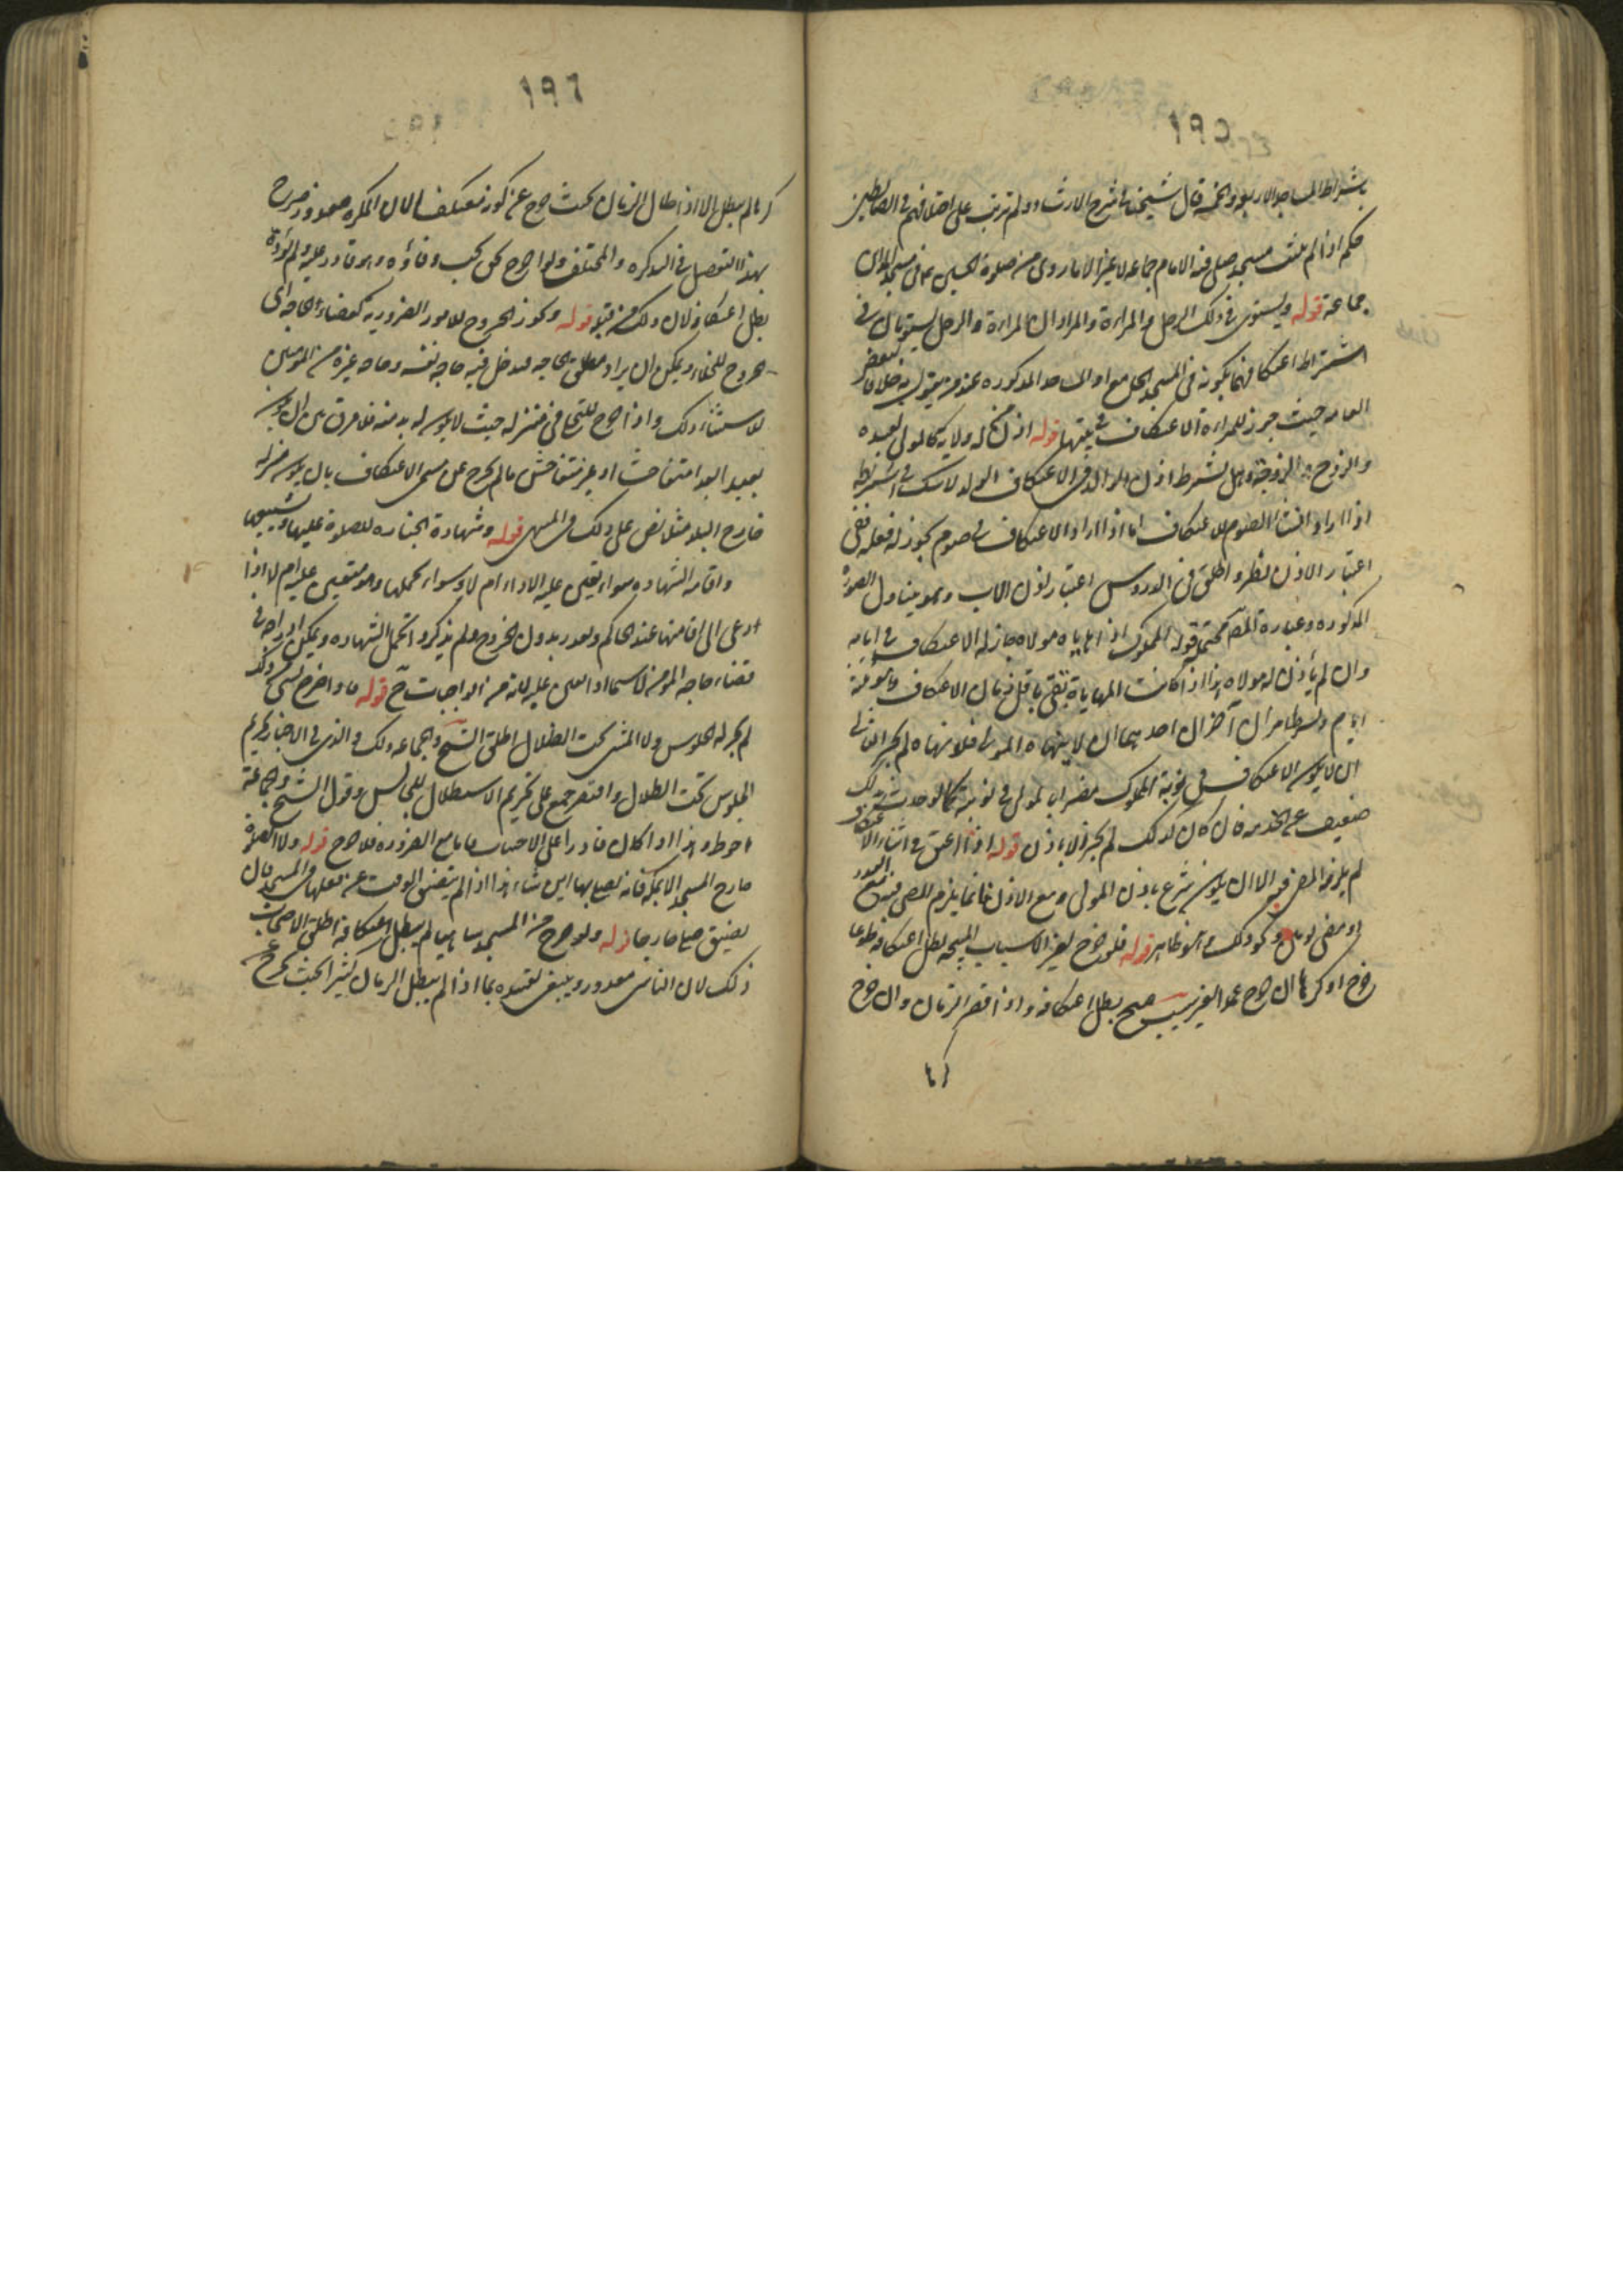 ١٩٥
باشتراط المساجد الاربعة والخمسة قال شيخنا في شرح الارشاد ولم ترتب على اختلافهم في الضابطين
حكم اذ لم يثبت مسجد صلى فيه الامام جماعة لا غير الا ما روى من صلوة الحسن ع في مسجد المداين
جماعة قوله ويستوى في ذلك الرجل والمراءة والمراد ان المراءة والرجل يستويان في
اشتراط اعتكافهما بكونه في المسجد الجامع او المساجد المذكورة عند من يقول به خلافا لبعض
العامة حيث جوز للمراءة الاعتكاف في بيتها قوله اذن من له ولاية كالمولى لعبده
والزوج الزوجة وهل يشترط اذن الوالد في الاعتكاف الولد لا شك في اشتراطه
اذا اراد انشاء الصوم للاعتكاف اما اذا اراد الاعتكاف في صوم يجوز له فعله ففي
اعتبار الاذن نظر واطلق في الدروس اعتبار اذن الاب وهو يتناول الصورة
المذكورة وعبارة المصنف محتملة قوله المملوك اذا هاياه مولاه جاز له الاعتكاف في ايامه
وان لم يأذن له مولاه هذا اذا كانت المهاياة تفى باقل زمان الاعتكاف وهو ثلثة
ايام ويشترط امران آخران احدهما ان لا ينهاه المولى فلو نهاه لم يجز الثانى
ان لا يكون الاعتكاف في نوبة المملوك مضرا بالمولى في نوبته كما لو حدث بذلك
ضعيف عن الخدمة فان كان كذلك لم يجز الا باذن قوله اذا اعتق في اثناء الاعتكاف
لم يلزمه المضى فيه الا ان يكون شرع باذن المولى ومع الاذن فانما يلزم المضى فيه مع النذر
او مضى يومين ونحو ذلك وهو ظاهر قوله فلو خرج لغير الاسباب المبيحة بطل اعتكافه طوعا
خرج او كرها ان خرج عمدا لغير سبب مبيح بطل اعتكافه واذا قصر الزمان وان خرج
كرها
١٩٦
كرها لم يبطل الا اذا طال الزمان بحيث خرج عن كونه معتكفا لان المكره معذور وصرح
بهذا التفصيل في التذكرة والمختلف ولو اخرج لحق يجب وفاؤه وهو قادر عليه ولم يؤده
بطل اعتكافه لان ذلك من قبله قوله ويجوز الخروج للامور الضرورية كقضاء الحاجة اى
الخروج للخلاء ويمكن ان يراد مطلق الحاجة فيدخل فيه حاجة نفسه وحاجة غيره من المؤمنين
لاستثناء ذلك واذا خرج للتخلى في منزله حيث لا يكون له بد منه فلا فرق بين ان يكون
بعيدا لبعد متفاحشا او غير متفاحش ما لم يخرج عن مسمى الاعتكاف بان يكون منزله
خارج البلد مثلا نص على ذلك في المنتهى قوله وشهادة الجنازة للصلوة عليها وتشييعها
واقامة الشهادة سواء تعين عليه الاداء ام لا وسواء تحملها وهو متعين عليه ام لا اذا
دعى الى اقامتها عند الحاكم وتعذر بدون الخروج ولم يذكروا تحمل الشهادة ويمكن ادراجه في
قضاء حاجة المؤمن لا سيما اذا تعين عليه لانه من الواجبات ح قوله واذا خرج لشئ من ذلك
لم يجز له الجلوس ولا المشى تحت الظلال اطلق الشيخ والجماعة ذلك والذى في الاخبار تحريم
الجلوس تحت الظلال واقتصر جمع على تحريم الاستظلال للجالس وقول الشيخ والجماعة
احوط وهذا اذا كان قادرا على الاجتناب فاما مع الضرورة فلا حرج قوله ولا الصلوة
خارج المسجد الا بمكة فانه يصلى بها اين شاء هذا اذا لم يتضيق الوقت عن فعلها في المسجد فان
يضيق صلى خارجا قوله ولو خرج من المسجد ساهيا لم يبطل اعتكافه اطلق الاصحاب
ذلك لان الناسى معذور وينبغى تقييده بما اذا لم يطل الزمان كثيرا بحيث يخرج عن